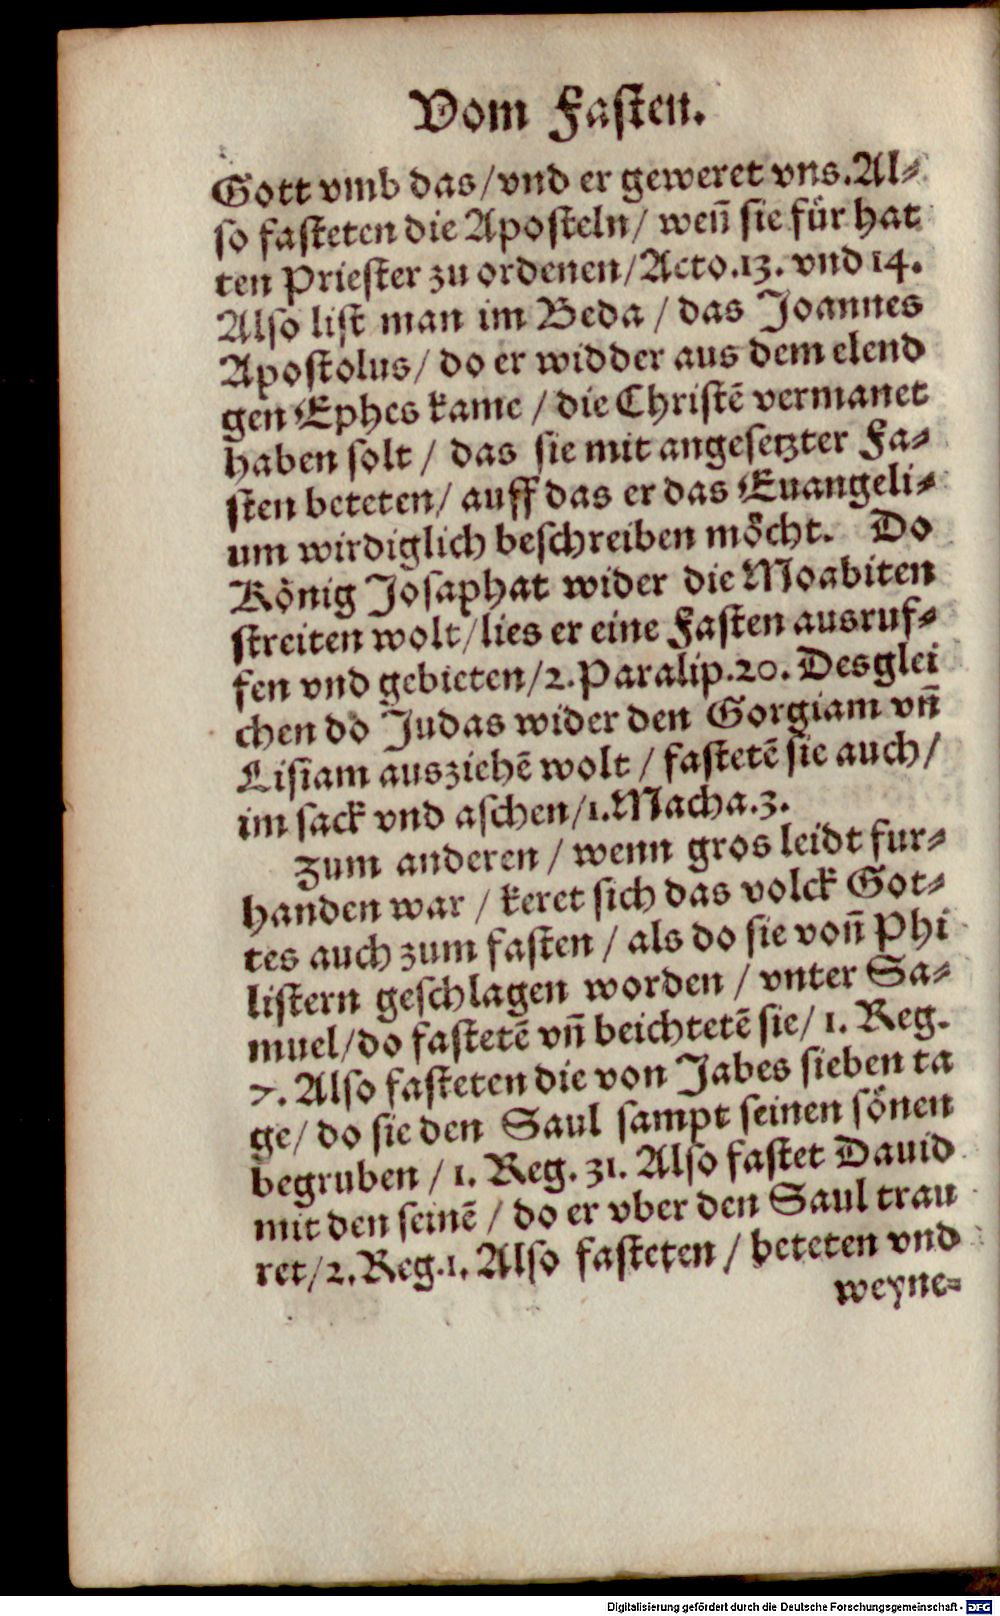 Vom Fasten.
Gott vmb das/vnd er geweret vns.Al⸗
so fasteten die Aposteln/ weñ sie für hat
ten Priester zu ordenen/Acto.13. vnd 14.
Also list man im Beda / das Joannes
Apostolus/ do er widder aus dem elend
gen Ephes kame / die Christē vermanet
haben solt / das sie mit angesetzter Fa⸗
sten beteten/ auff das er das Euangeli⸗
um wirdiglich beschreiben möcht. Do
König Josaphat wider die Moabiten
streiten wolt/lies er eine Fasten ausruf⸗
fen vnd gebieten/2.Paralip.20. Desglei
chen do Judas wider den Gorgiam vñ
Lisiam ausziehē wolt / fastetē sie auch/
im sack vnd aschen/1.Macha.3.
Zum anderen / wenn gros leidt fur⸗
handen war / keret sich das volck Got⸗
tes auch zum fasten / als do sie voñ Phi
listern geschlagen worden / vnter Sa⸗
muel/do fastetē vñ beichtetē sie/ 1. Reg.
7. Also fasteten die von Jabes sieben ta
ge/ do sie den Saul sampt seinen sönen
begruben / 1. Reg. 31. Also fastet Dauid
mit den seinē / do er vber den Saul trau
ret/2.Reg.1. Also fasteten / beteten vnd
weyne⸗
Digitalisierung gefördert durch die Deutsche Forschungsgemeinschaft - DFG